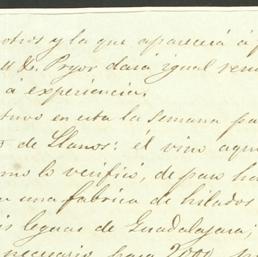 otros y la que aparecerá á p
M. de Pryor dara igual ven
á experiencia.
tuvo en esta la semana pa
de Llanos: él vino aqu
mo lo verificó, de paso ha
una fabrica de hilados
is leguas de Guadalajara;
necesario hasta 2000